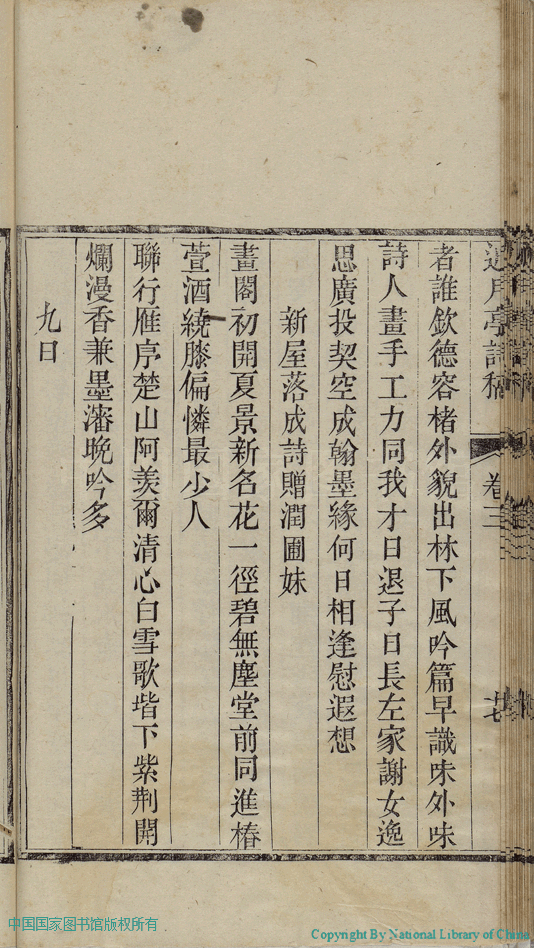 邀月亭詩稿 卷三
者誰欽德容楮外貌出林下風吟篇早識味外味
詩人畫手工力同我才日退子日長左家謝女逸
思廣投契空成翰墨緣何日相逢慰遐想
新屋落成詩贈潤圃妹
畫閣初開夏景新名花一徑碧無塵堂前同進椿
萱酒繞膝偏憐最少人
聯行雁序楚山阿羨爾清心白雪歌堦下紫荆開
爛漫香兼墨瀋晚吟多
九日
中国国家图书馆版权所有
Copyright By National Library of China